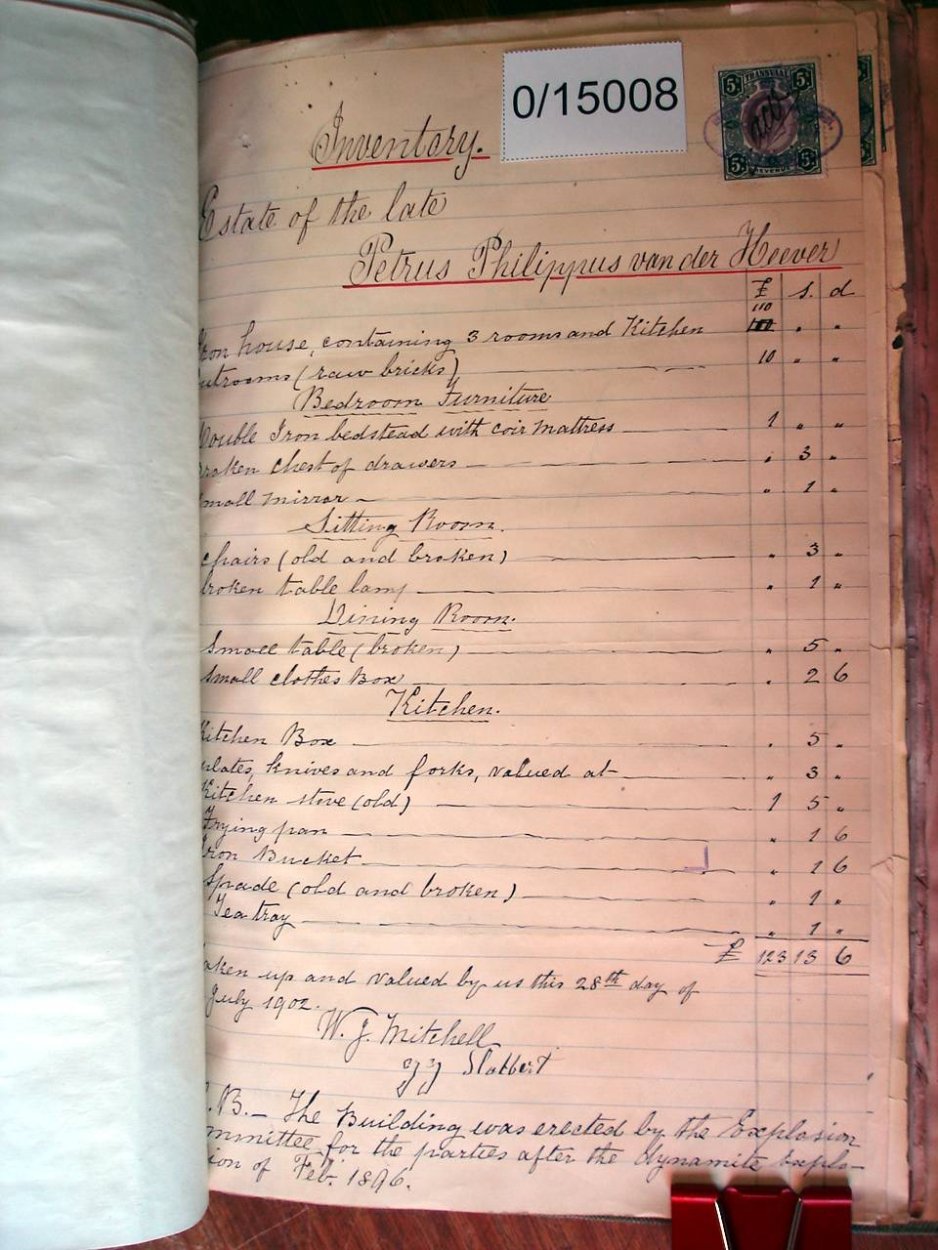 0/15008
5/- TRANSVAAL 5/-
5/- REVENUE 5/-
Inventory.
Estate of the late
Petrus Philippus van der Heever
£ s. d
110
ron house, containing 3 rooms and Kitchen 100 " "
utrooms (raw bricks) 10 " "
Bedroom Furniture
Double Iron bedstead with coir mattress 1 " "
roken chest of drawers " 3 "
mall mirror " 1 "
Sitting Room.
chairs (old and broken) " 3 "
broken table lamp " 1 "
Dining Room.
Small table (broken) " 5 "
Small clothes Box " 2 6
Kitchen.
Kitchen Box " 5 "
plates, knives and forks, valued at " 3 "
Kitchen stove (old) 1 5 "
Frying pan " 1 6
Iron Bucket " 1 6
Spade (old and broken) " 1 "
Tea tray " 1 "
£ 123 13 6
aken up and valued by us this 28th day of
July 1902.
W. J. Mitchell
Slabbert
.B. - The Building was erected by the Explosion
mmittee for the parties after the dynamite Explo-
ion of Feb. 1896.